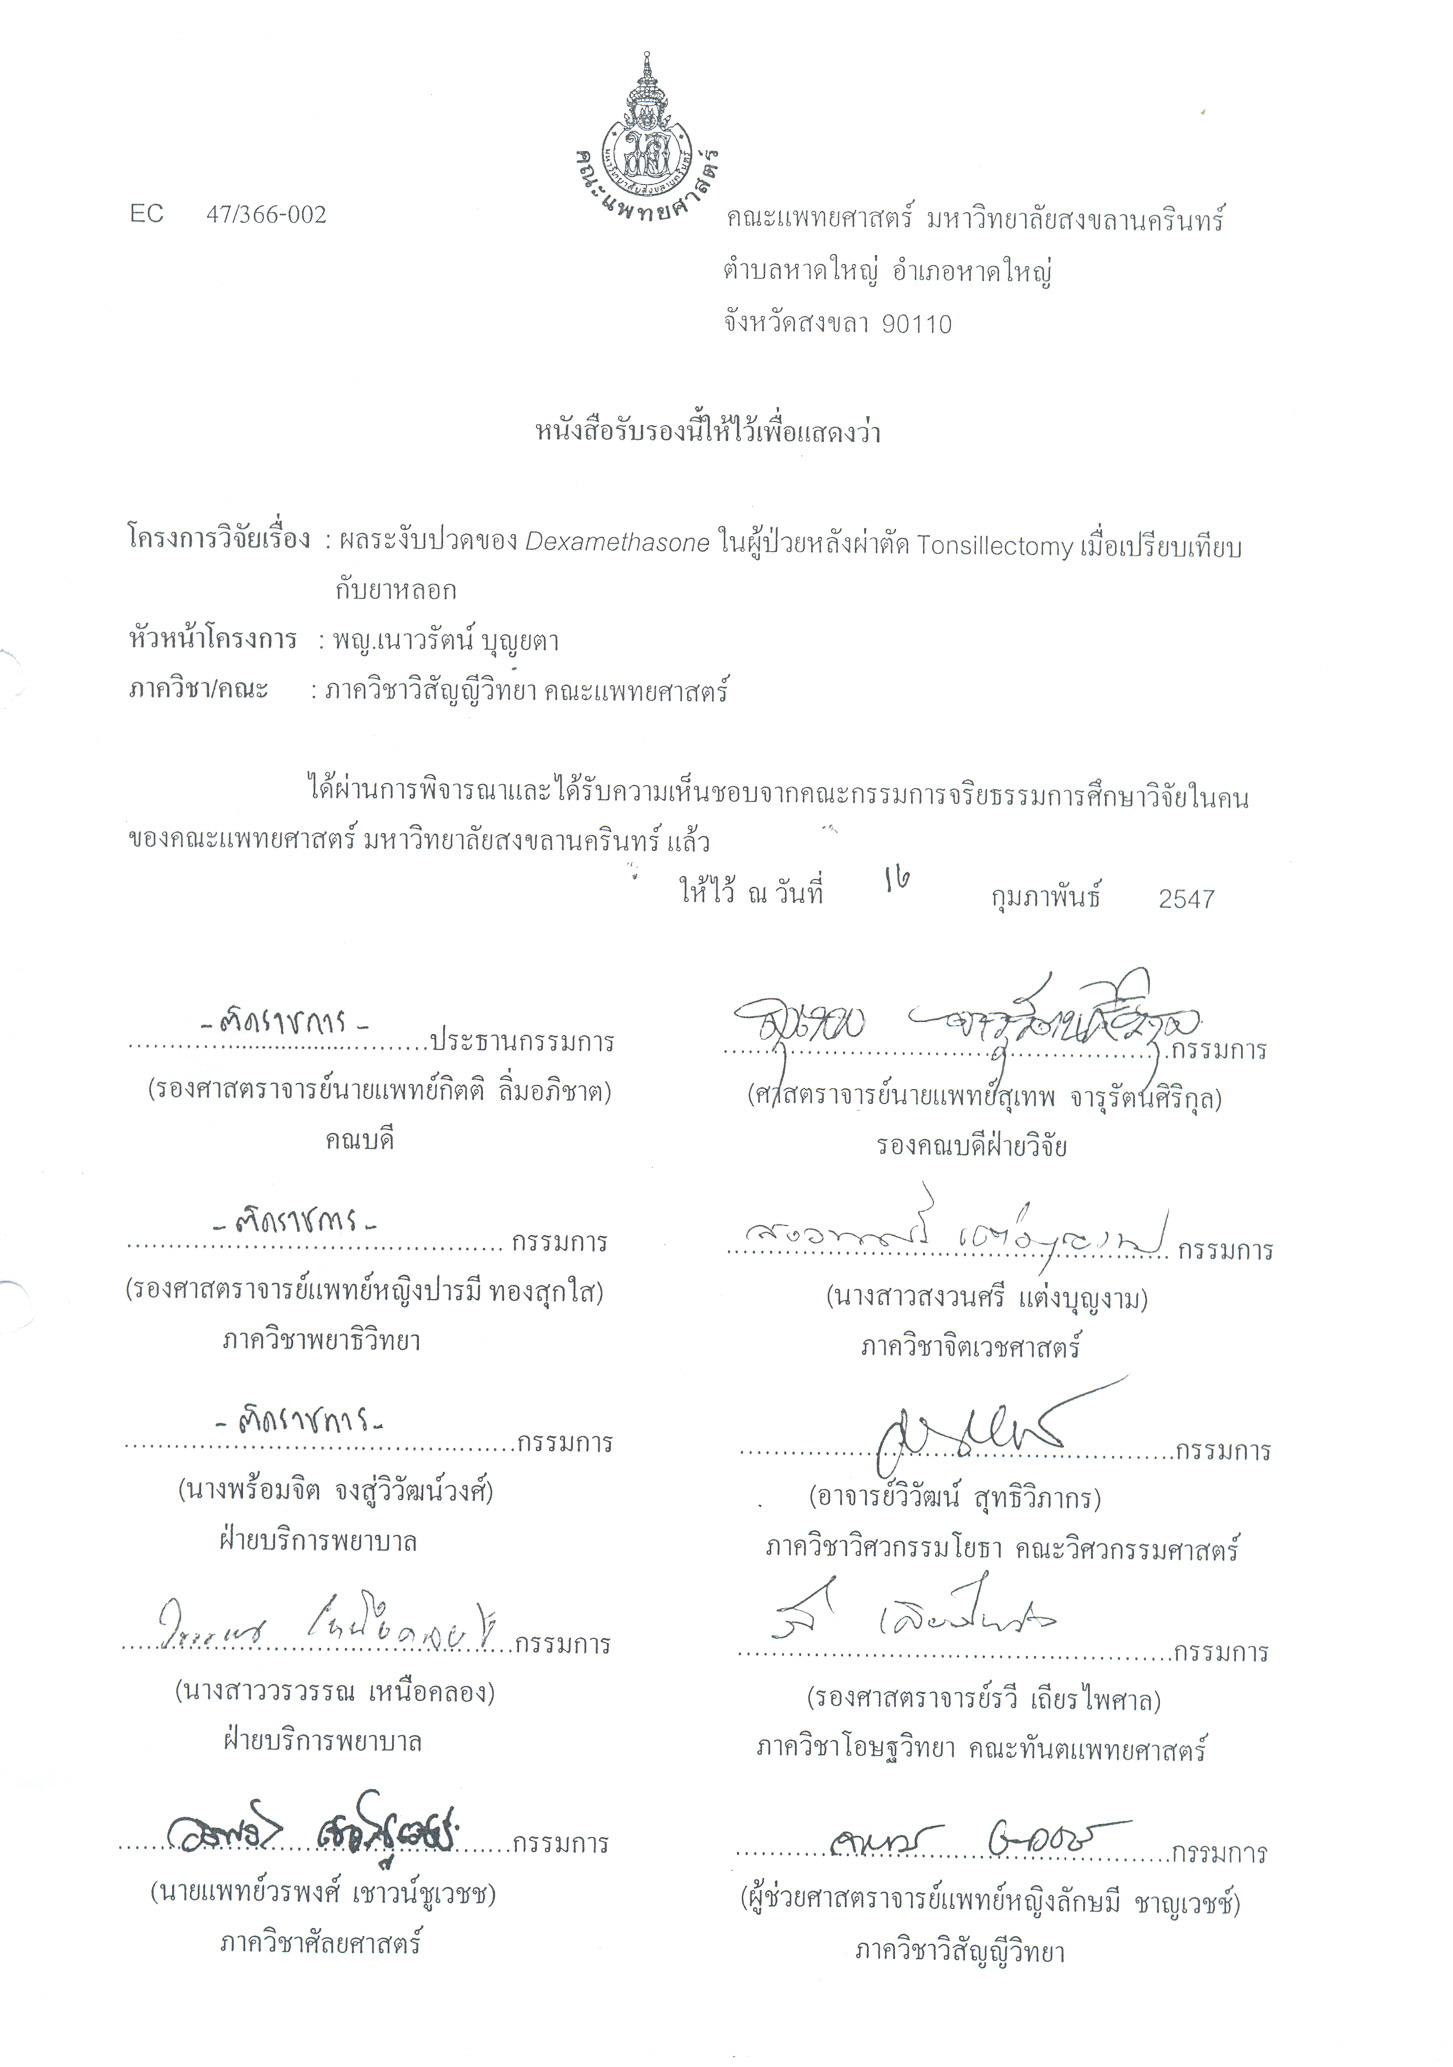 มหาวิทยาลัยสงขลานครินทร์
คณะแพทยศาสตร์
EC 47/366-002
คณะแพทยศาสตร์ มหาวิทยาลัยสงขลานครินทร์
ตำบลหาดใหญ่ อำเภอหาดใหญ่
จังหวัดสงขลา 90110
หนังสือรับรองนี้ให้ไว้เพื่อแสดงว่า
โครงการวิจัยเรื่อง : ผลระงับปวดของ Dexamethasone ในผู้ป่วยหลังผ่าตัด Tonsillectomy เมื่อเปรียบเทียบ
กับยาหลอก
หัวหน้าโครงการ : พญ.เนาวรัตน์ บุญยตา
ภาควิชา/คณะ : ภาควิชาวิสัญญีวิทยา คณะแพทยศาสตร์
ได้ผ่านการพิจารณาและได้รับความเห็นชอบจากคณะกรรมการจริยธรรมการศึกษาวิจัยในคน
ของคณะแพทยศาสตร์ มหาวิทยาลัยสงขลานครินทร์ แล้ว
ให้ไว้ ณ วันที่ 16 กุมภาพันธ์ 2547
- ติดราชการ - ประธานกรรมการ
(รองศาสตราจารย์นายแพทย์กิตติ ลิ่มอภิชาต)
คณบดี
กรรมการ
(ศาสตราจารย์นายแพทย์สุเทพ จารุรัตนศิริกุล)
รองคณบดีฝ่ายวิจัย
- ติดราชการ - กรรมการ
(รองศาสตราจารย์แพทย์หญิงปารมี ทองสุกใส)
ภาควิชาพยาธิวิทยา
กรรมการ
(นางสาวสงวนศรี แต่งบุญงาม)
ภาควิชาจิตเวชศาสตร์
- ติดราชการ - กรรมการ
(นางพร้อมจิต จงสู่วิวัฒน์วงศ์)
ฝ่ายบริการพยาบาล
กรรมการ
(อาจารย์วิวัฒน์ สุทธิวิภากร)
ภาควิชาวิศวกรรมโยธา คณะวิศวกรรมศาสตร์
กรรมการ
(นางสาววรวรรณ เหนือคลอง)
ฝ่ายบริการพยาบาล
กรรมการ
(รองศาสตราจารย์รวี เถียรไพศาล)
ภาควิชาโอษฐวิทยา คณะทันตแพทยศาสตร์
กรรมการ
(นายแพทย์วรพงศ์ เชาวน์ชูเวชช)
ภาควิชาศัลยศาสตร์
กรรมการ
(ผู้ช่วยศาสตราจารย์แพทย์หญิงลักษมี ชาญเวชช์)
ภาควิชาวิสัญญีวิทยา